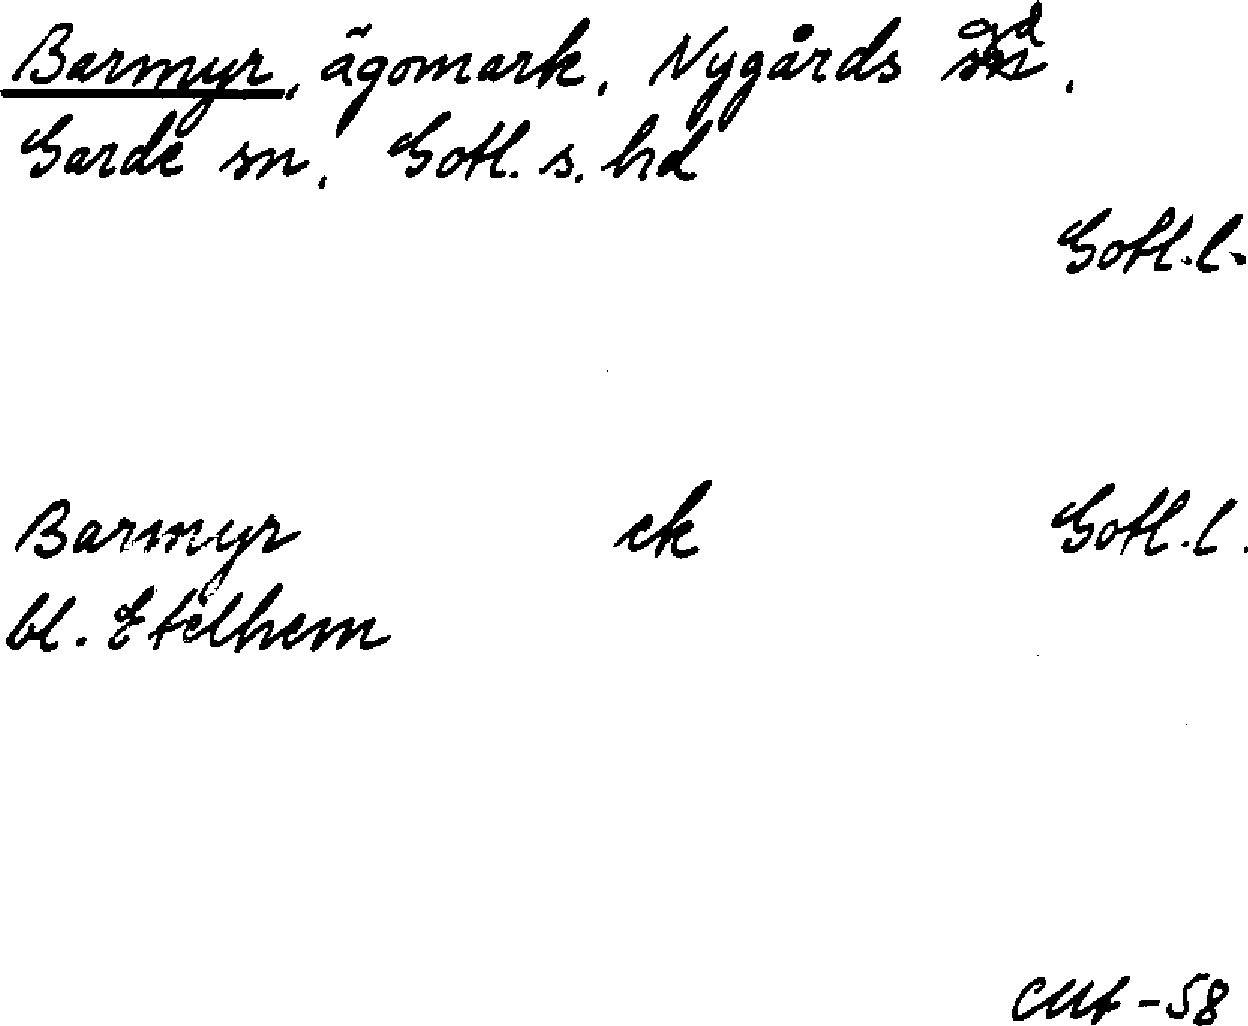 Barmyr, ägomark, Nygårds gd,
Garde sn, Gotl. s. hd
Gotl.l.
Barmyr ek Gotl.l.
bl. Etelhem
CMt-58